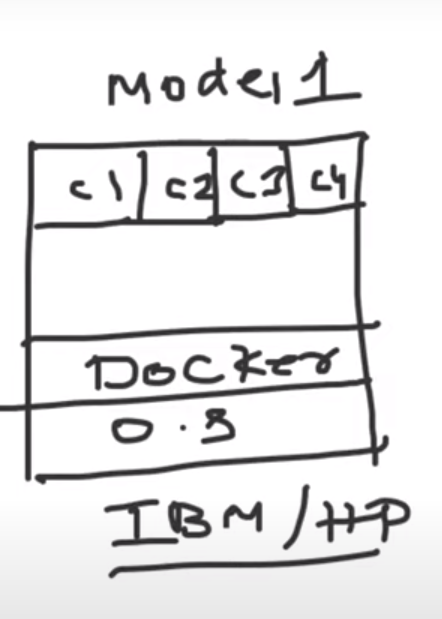 Model 1
C1 C2 C3 C4
DOCKER
O.S
IBM/HP